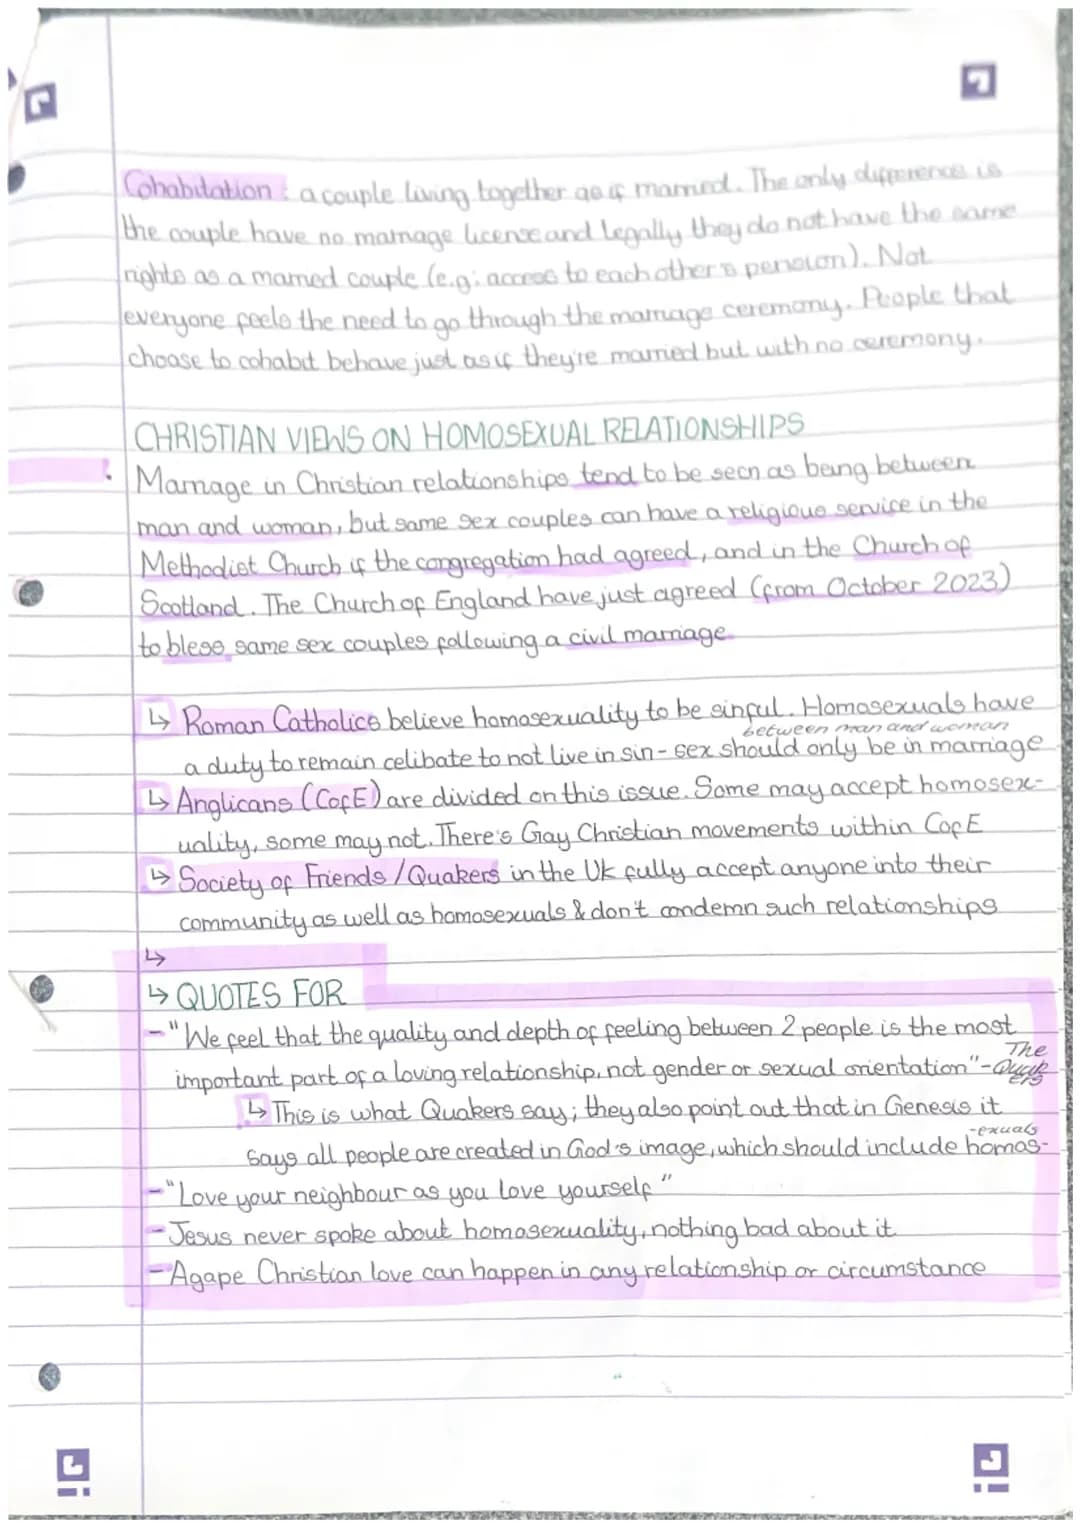 Cohabitation : a couple living together as if married. The only difference is
the couple have no marriage license and legally they do not have the same
rights as a married couple (e.g: access to each other's pension). Not
everyone feels the need to go through the marriage ceremony. People that
choose to cohabit behave just as if they're married but with no ceremony.
CHRISTIAN VIEWS ON HOMOSEXUAL RELATIONSHIPS
Marriage in Christian relationships tend to be seen as being between
man and woman, but same sex couples can have a religious service in the
Methodist Church if the congregation had agreed, and in the Church of
Scotland. The Church of England have just agreed (from October 2023)
to bless same sex couples following a civil marriage.
↳ Roman Catholics believe homosexuality to be sinful. Homosexuals have
between man and woman
a duty to remain celibate to not live in sin - sex should only be in marriage
↳ Anglicans (CofE) are divided on this issue. Some may accept homosex-
uality, some may not. There's Gay Christian movements within CofE
↳ Society of Friends / Quakers in the UK fully accept anyone into their
community as well as homosexuals & don't condemn such relationships
↳
↳ QUOTES FOR
- "We feel that the quality and depth of feeling between 2 people is the most
important part of a loving relationship, not gender or sexual orientation" - The Quakers
↳ This is what Quakers say; they also point out that in Genesis it
says all people are created in God's image, which should include homos-
-exuals
- "Love your neighbour as you love yourself"
- Jesus never spoke about homosexuality, nothing bad about it
- Agape Christian love can happen in any relationship or circumstance